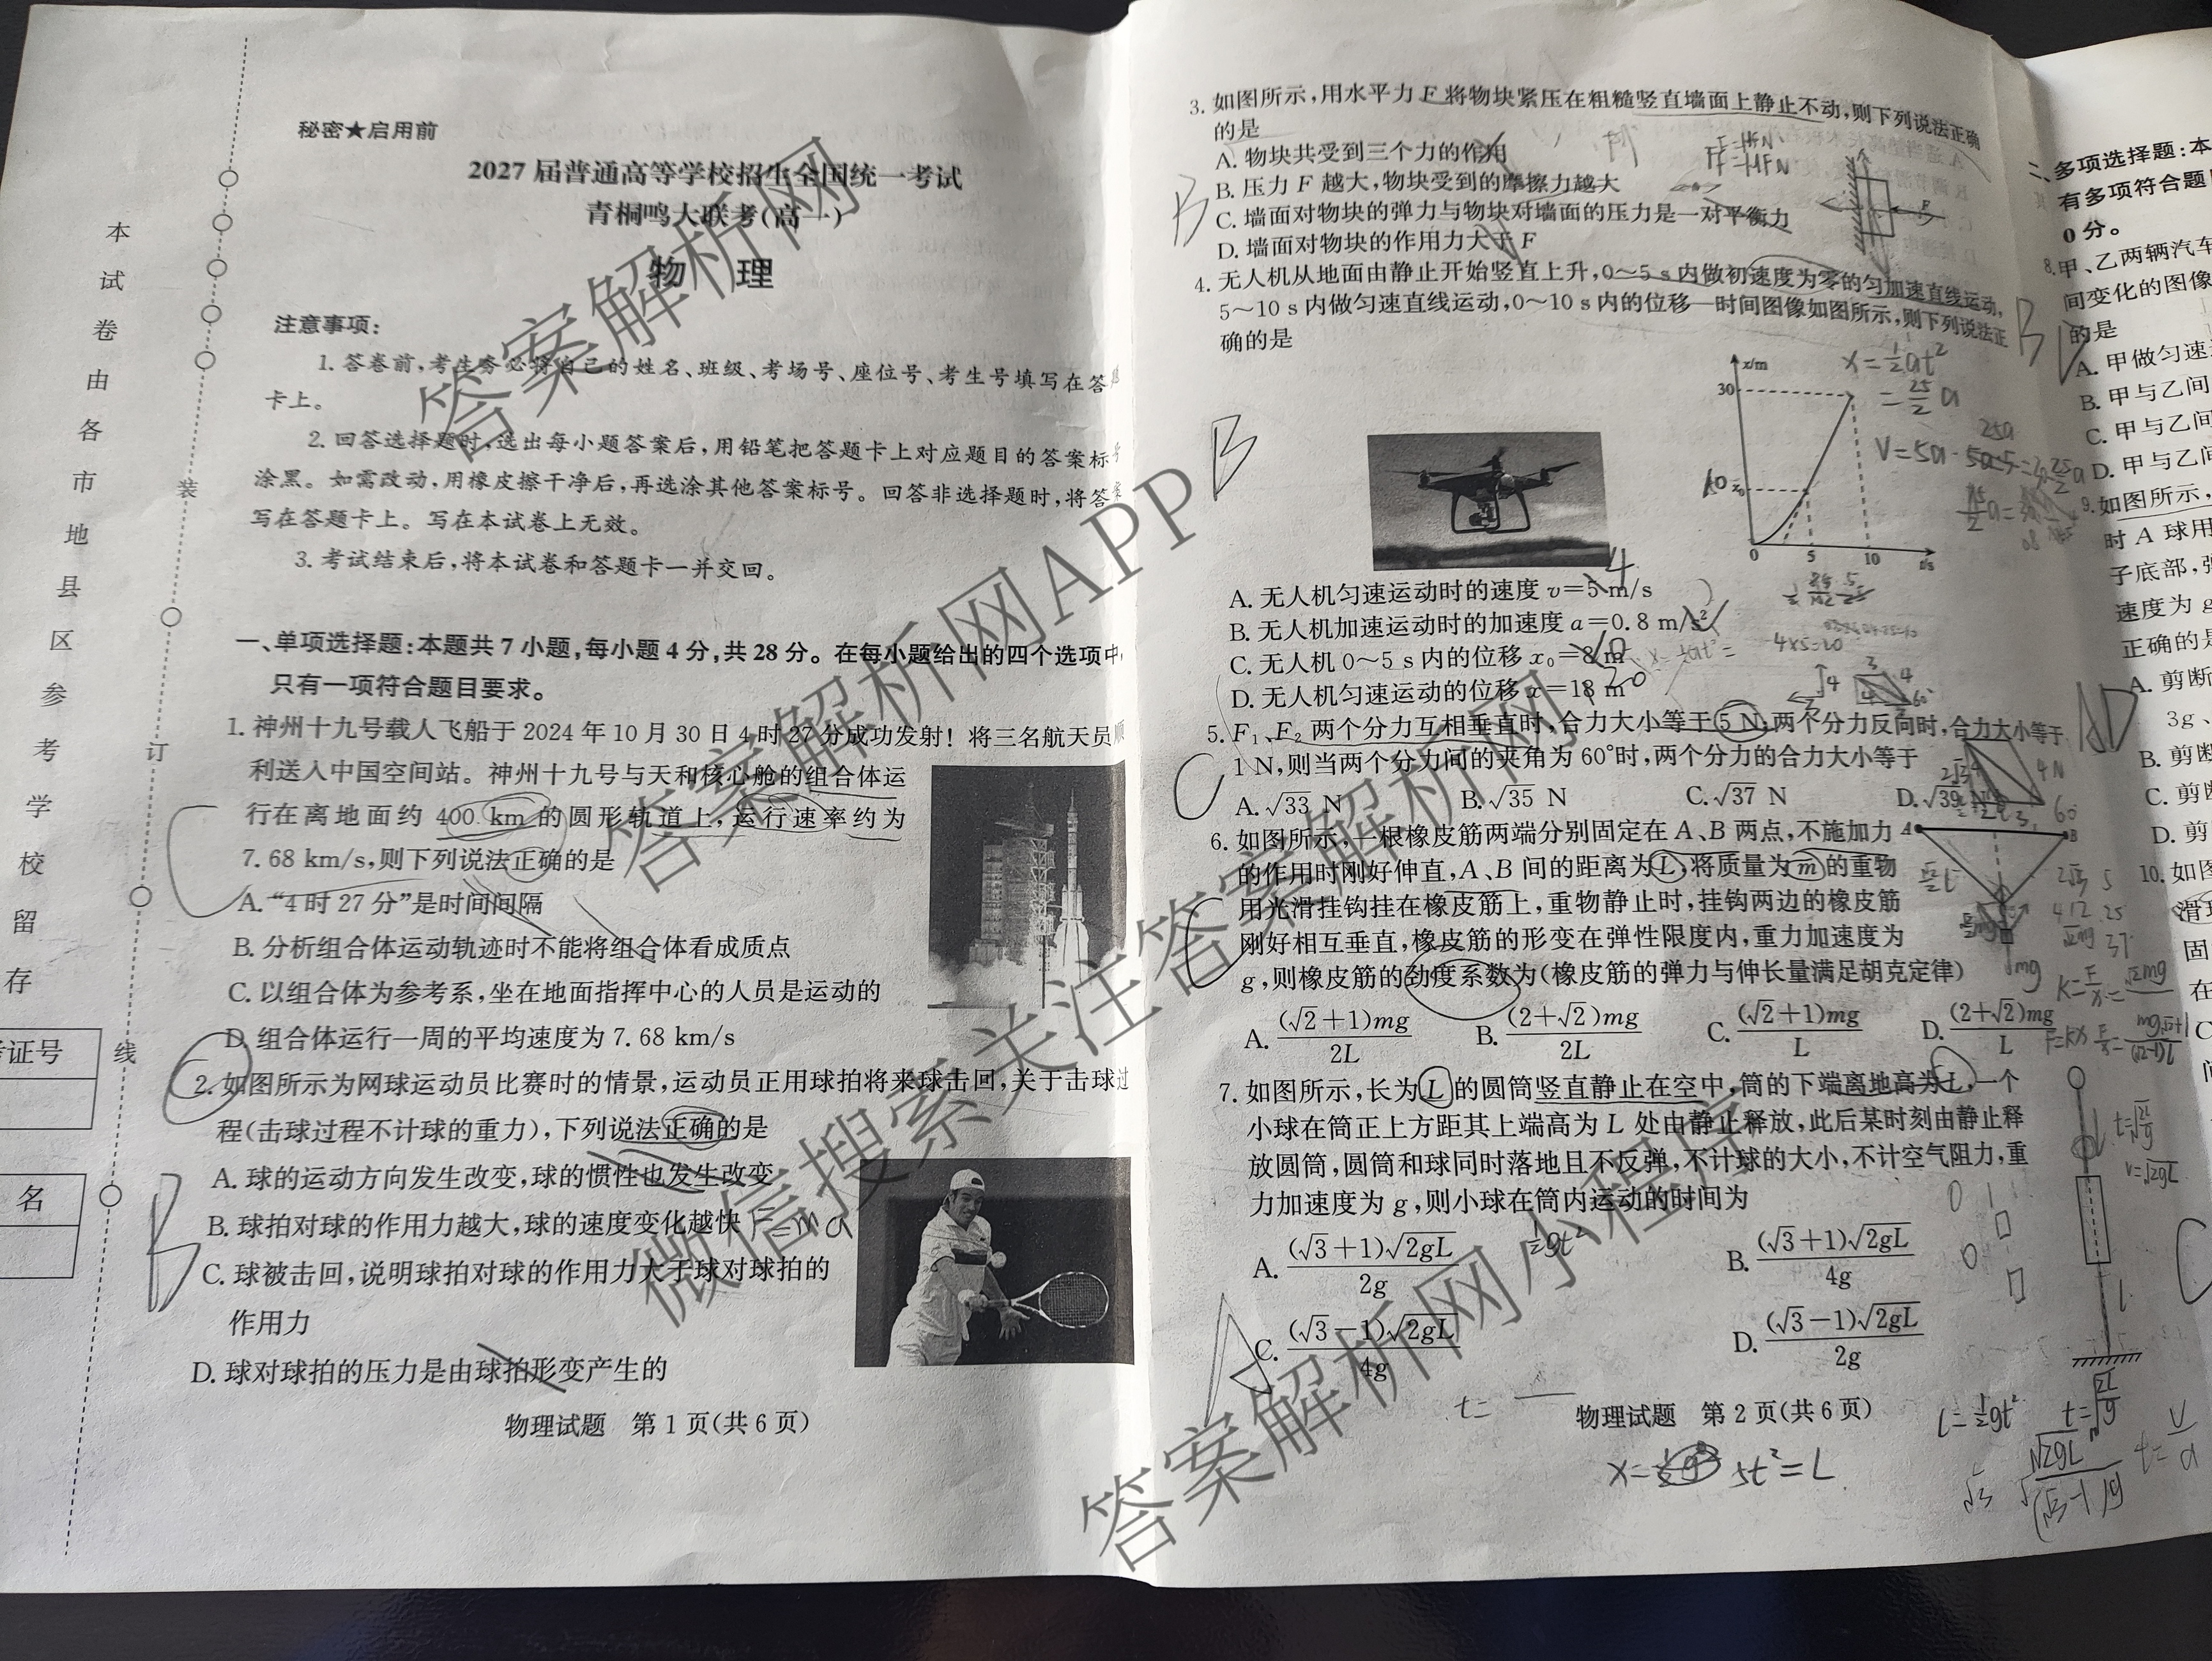 秘密★启用前
2027届普通高等学校招生全国统一考试
青桐鸣大联考(高一)
物 理
注意事项：
1.答卷前,考生务必将自己的姓名、班级、考场号、座位号、考生号填写在答
卡上。
2.回答选择题时,选出每小题答案后,用铅笔把答题卡上对应题目的答案标号
涂黑。如需改动,用橡皮擦干净后,再选涂其他答案标号。回答非选择题时,将答案
写在答题卡上。写在本试卷上无效。
3.考试结束后,将本试卷和答题卡一并交回。
一、单项选择题:本题共7小题,每小题4分,共28分。在每小题给出的四个选项中
只有一项符合题目要求。
1.神州十九号载人飞船于2024年10月30日4时27分成功发射！将三名航天员顺
利送入中国空间站。神州十九号与天和核心舱的组合体运
行在离地面约400 km的圆形轨道上,运行速率约为
7.68 km/s,则下列说法正确的是
A.“4时27分”是时间间隔
B.分析组合体运动轨迹时不能将组合体看成质点
C.以组合体为参考系,坐在地面指挥中心的人员是运动的
D.组合体运行一周的平均速度为7.68 km/s
2.如图所示为网球运动员比赛时的情景,运动员正用球拍将来球击回,关于击球过
程(击球过程不计球的重力),下列说法正确的是
A.球的运动方向发生改变,球的惯性也发生改变
B.球拍对球的作用力越大,球的速度变化越快 F=ma
C.球被击回,说明球拍对球的作用力大于球对球拍的
作用力
D.球对球拍的压力是由球拍形变产生的
物理试题 第1页(共6页)
本试卷由各市地县区参考学校留存
装
订
线
证号
名
3.如图所示,用水平力F将物块紧压在粗糙竖直墙面上静止不动,则下列说法正确
的是
A.物块共受到三个力的作用
B.压力F越大,物块受到的摩擦力越大
C.墙面对物块的弹力与物块对墙面的压力是一对平衡力
D.墙面对物块的作用力大于F
F
4.无人机从地面由静止开始竖直上升,0~5 s内做初速度为零的匀加速直线运动,
5~10 s内做匀速直线运动,0~10 s内的位移—时间图像如图所示,则下列说法正
确的是
x/m
30
x₀
0 5 10 t/s
A.无人机匀速运动时的速度v=5 m/s
B.无人机加速运动时的加速度a=0.8 m/s²
C.无人机0~5 s内的位移x₀=8 m
D.无人机匀速运动的位移x=18 m
5.F₁、F₂两个分力互相垂直时,合力大小等于5 N;两个分力反向时,合力大小等于
1 N,则当两个分力间的夹角为60°时,两个分力的合力大小等于
A.√33 N B.√35 N C.√37 N D.√39 N
6.如图所示,一根橡皮筋两端分别固定在A、B两点,不施加力
的作用时刚好伸直,A、B间的距离为L,将质量为m的重物
用光滑挂钩挂在橡皮筋上,重物静止时,挂钩两边的橡皮筋
刚好相互垂直,橡皮筋的形变在弹性限度内,重力加速度为
g,则橡皮筋的劲度系数为(橡皮筋的弹力与伸长量满足胡克定律)
A B
A.(√2+1)mg/2L B.(2+√2)mg/2L C.(√2+1)mg/L D.(2+√2)mg/L
7.如图所示,长为L的圆筒竖直静止在空中,筒的下端离地高为L,一个
小球在筒正上方距其上端高为L处由静止释放,此后某时刻由静止释
放圆筒,圆筒和球同时落地且不反弹,不计球的大小,不计空气阻力,重
力加速度为g,则小球在筒内运动的时间为
A.(√3+1)√2gL/2g B.(√3+1)√2gL/4g
C.(√3−1)√2gL/4g D.(√3−1)√2gL/2g
物理试题 第2页(共6页)
二、多项选择题:本
有多项符合题
0分。
8.甲、乙两辆汽车
间变化的图像
的是
A.甲做匀速
B.甲与乙间
C.甲与乙间
D.甲与乙间
9.如图所示,
时A球用
子底部,弹
速度为g
正确的是
A.剪断
3g、
B.剪断
C.剪断
D.剪
10.如图
滑
固
在
答案解析网
答案解析网APP
微信搜索关注答案解析网
答案解析网小程序